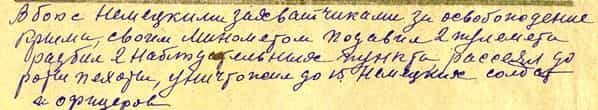 В бою с немецкими захватчиками за освобождение
Крыма, своим минометом подавил 2 пулемета
разбил 2 наблюдательных пункта рассеял до
роты пехоты, уничтожил до 15 немецких солдат
и офицеров